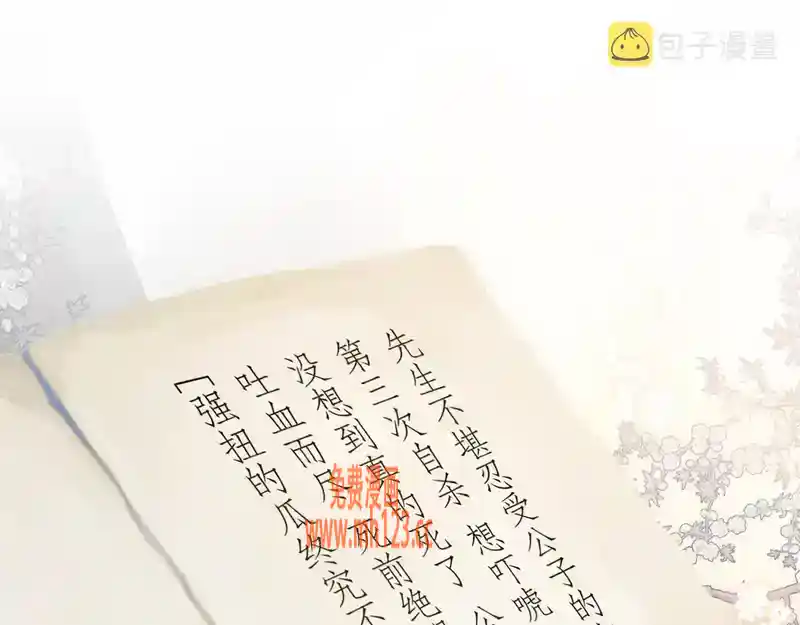 包子漫畫
先生不堪忍受公子的
第三次自杀 想吓唬
没想到真的死了 公
吐血而 死前绝
「强扭的瓜终究不
免费漫画
www.mn123.cc